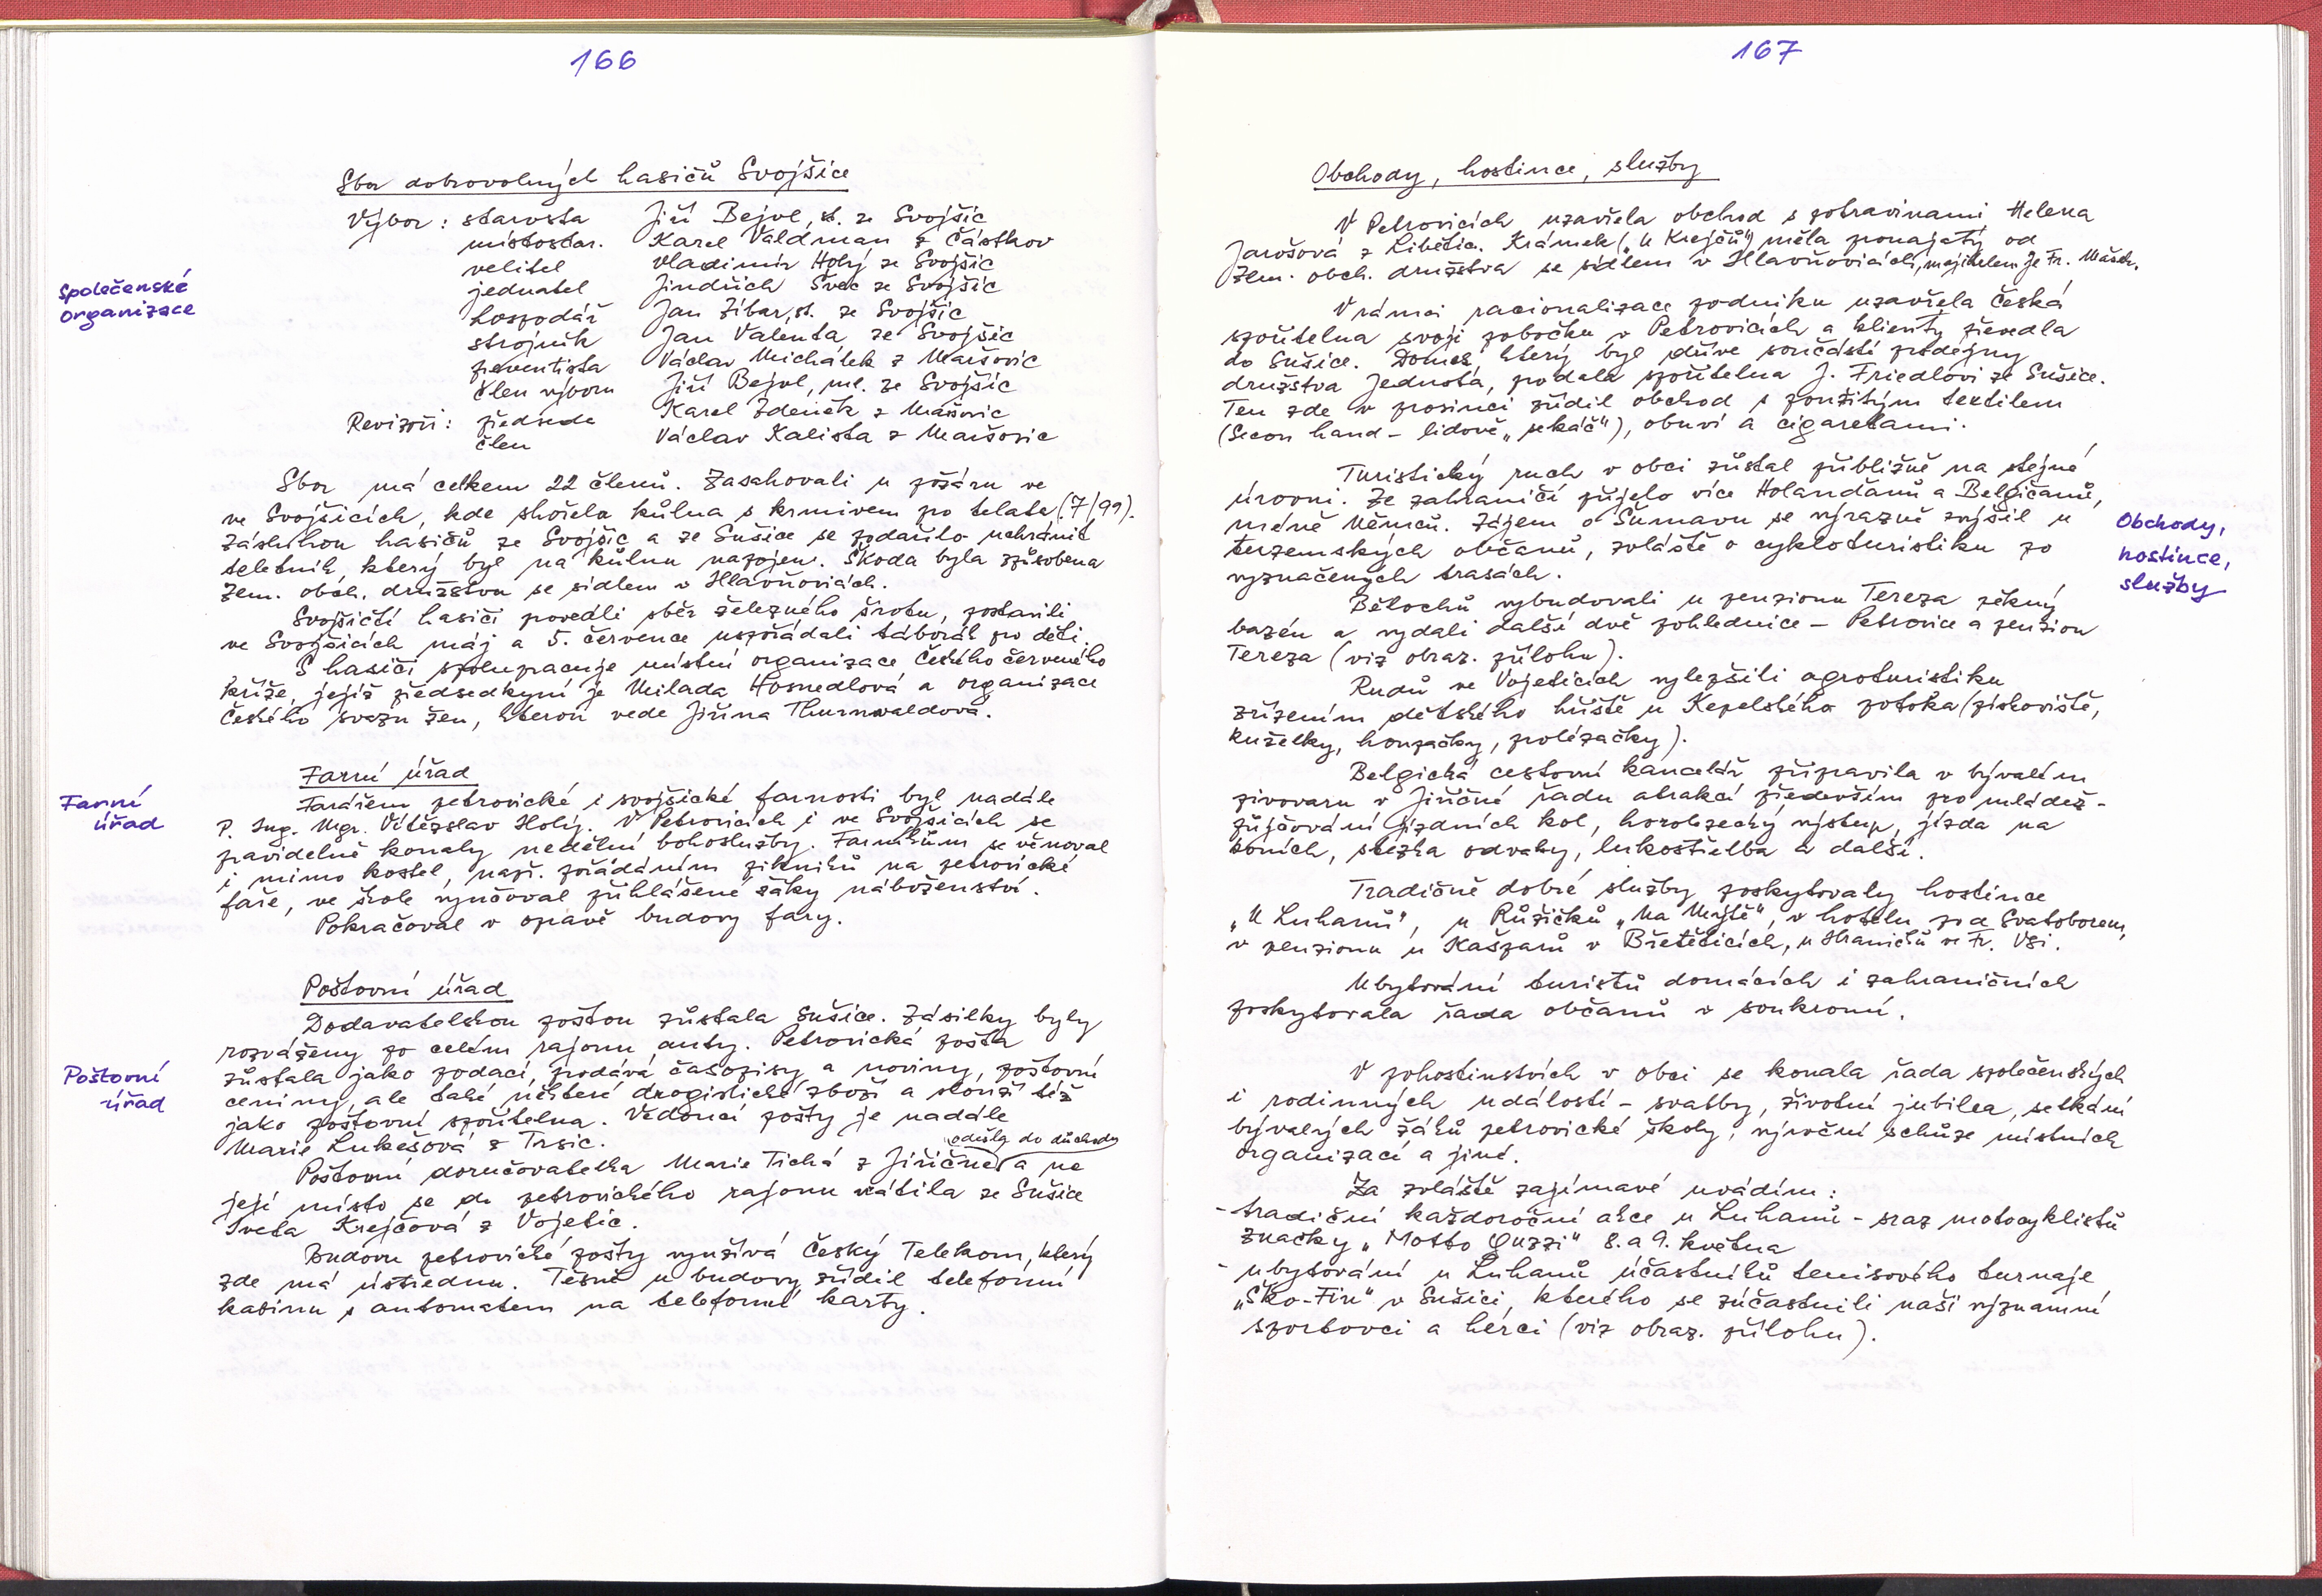 166
Společenské
organizace
Sbor dobrovolných hasičů Svojšice
Výbor: starosta Jiří Bejvl, st. ze Svojšic
místostar. Karel Valdman z Částkov
velitel Vladimír Holý ze Svojšic
jednatel Jindřich Švec ze Svojšic
hospodář Jan Zíbar, st. ze Svojšic
strojník Jan Valenta ze Svojšic
preventista Václav Michálek z Maršovic
člen výboru Jiří Bejvl, ml. ze Svojšic
Revizoři: předseda Karel Zdeněk z Maršovic
člen Václav Kalista z Maršovic
Sbor má celkem 22 členů. Zasahovali u požáru ve
ve Svojšicích, kde shořela kůlna s krmivem po telata (7/99).
Zásluhou hasičů ze Svojšic a ze Sušice se podařilo uchránit
teletník, který byl na kůlnu napojen. Škoda byla způsobena
Zem. obch. družstvu se sídlem v Hlavňovicích.
Svojšičtí hasiči provedli sběr železného šrotu, postavili
ve Svojšicích máj a 5. července uspořádali táborák pro děti.
S hasiči spolupracuje místní organizace Českého červeného
kříže, jejíž předsedkyní je Milada Hosnedlová a organizace
Českého svazu žen, kterou vede Jiřina Thurnwaldová.
Farní
úřad
Farní úřad
Farářem petrovické i svojšické farnosti byl nadále
P. Ing. Mgr. Vítězslav Holý. V Petrovicích i ve Svojšicích se
pravidelně konaly nedělní bohoslužby. Farníkům se věnoval
i mimo kostel, např. pořádáním pikniků na petrovické
faře, ve škole vyučoval přihlášené žáky náboženství.
Pokračoval v opravě budovy fary.
Poštovní úřad
Dodavatelskou poštou zůstala Sušice. Zásilky byly
rozváženy po celém rajonu auty. Petrovická pošta
Poštovní
úřad
zůstala jako podací, prodává časopisy a noviny, poštovní
ceniny, ale také některé drogistické zboží a slouží též
jako poštovní spořitelna. Vedoucí pošty je nadále
Marie Lukešová z Trsic.
odešla do důchodu
Poštovní doručovatelka Marie Tichá z Jiřičné a na
její místo se do petrovického rajonu vrátila ze Sušice
Iveta Krejčová z Vojetic.
Budovu petrovické pošty využívá Český Telekom, který
zde má ústřednu. Těsně u budovy zřídil telefonní
kabinu s automatem na telefonní karty.
167
Obchody, hostince, služby
V Petrovicích uzavřela obchod s potravinami Helena
Jarošová z Libětic. Krámek („U Krejčů") měla pronajatý od
Zem. obch. družstva se sídlem v Hlavňovicích, majitelem je Fr.
V rámci racionalizace podniku uzavřela Česká
spořitelna svoji pobočku v Petrovicích a klienty převedla
do Sušice. Domek který byl dříve součástí prodejny
družstva Jednota, prodala spořitelna J. Friedlovi ze Sušice.
Ten zde v prosinci zřídil obchod s použitým textilem
(Secon hand - lidově „sekáč"), obuví a cigaretami.
Turistický ruch v obci zůstal přibližně na stejné
úrovni. Ze zahraničí přijelo více Holanďanů a Belgičanů,
méně Němců. Zájem o Šumavu se výrazně zvýšil u
tuzemských občanů, zvláště o cykloturistiku po
vyznačených trasách.
Obchody,
hostince,
služby
Bělochů vybudovali u penzionu Tereza pěkný
bazén a vydali další dvě pohlednice - Petrovice a penzion
Tereza (viz obraz. přílohu).
Rudů ve Vojeticích vylepšili agroturistiku
zřízením dětského hřiště u Kepelského potoka (pískoviště,
kuželky, houpačky, prolézačky).
Belgická cestovní kancelář připravila v bývalém
pivovaru v Jiřičné řadu atrakcí především pro mládež -
půjčování jízdních kol, horolezecký výstup, jízda na
koních, stezka odvahy, lukostřelba a další.
Tradičně dobré služby poskytovaly hostince
„U Luhanů", u Růžičků „Na Mýtě", v hotelu pod Svatoborem,
v penzionu u Kašparů v Břetěticích, u Hraničků ve Fr. Vsi.
Ubytování turistů domácích i zahraničních
poskytovala řada občanů v soukromí.
V pohostinstvích v obci se konala řada společenských
i rodinných událostí - svatby, životní jubilea, setkání
bývalých žáků petrovické školy, výroční schůze místních
organizací a jiné.
Za zvláště zajímavé uvádím:
- tradiční každoroční akce u Luhanů - sraz motocyklistů
značky „Motto Guzzi" 8. a 9. května
- ubytování u Luhanů účastníků tenisového turnaje
„Sko-Fin" v Sušici, kterého se zúčastnili naši významní
sportovci a herci (viz obraz. přílohu).